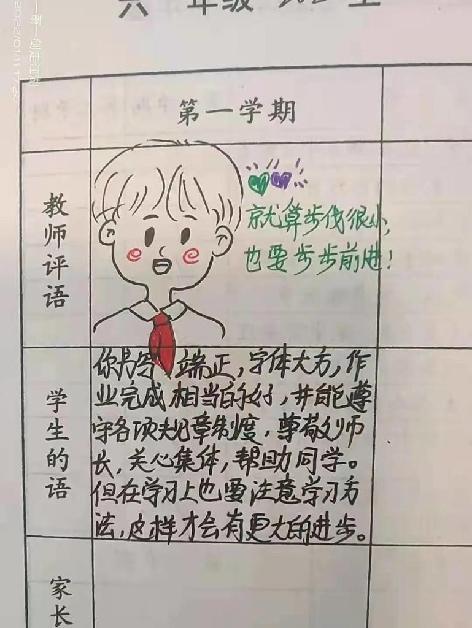 六 年级
第一学期
教师评语
就算步伐很小,
也要步步前进!
学生的语
你书写端正,字体大方,作
业完成相当的好,并能遵
守各项规章制度,尊敬师
长,关心集体,帮助同学。
但在学习上也要注意学习方
法,这样才会有更大的进步。
家长